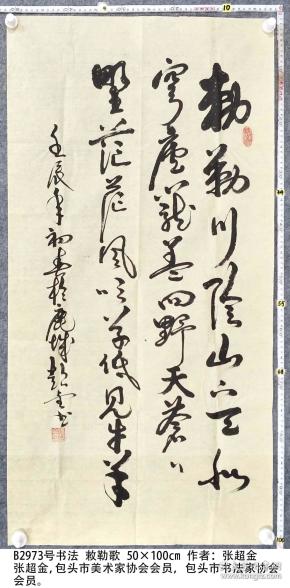 敕勒川陰山下天似
穹廬籠蓋四野天蒼〻
野茫茫風吹草低見牛羊
壬辰年初春於鹿城超金书
B2973号书法 敕勒歌 50×100cm 作者：张超金
张超金,包头市美术家协会会员，包头市书法家协会
会员。